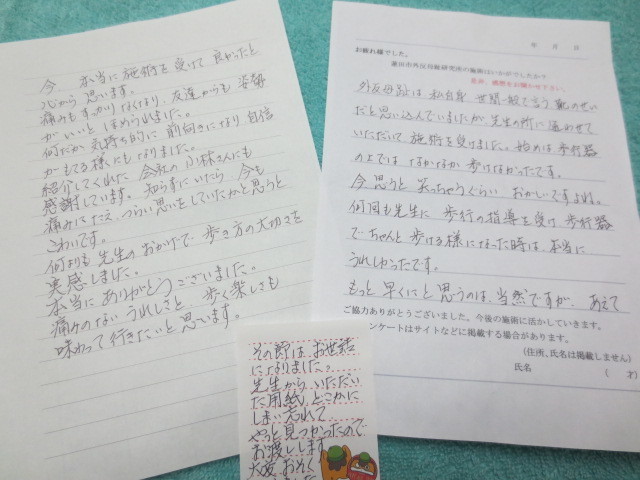 年　月　日
お疲れ様でした。
蓮田市外反母趾研究所の施術はいかがでしたか？
是非、感想をお聞かせ下さい。
外反母趾は私自身 世間一般で言う靴のせい
だと思い込んでいましたが、先生の所に通わせて
いただいて 施術を受けました。始めは歩行器
の上では なかなか歩けなかったです。
今思うと 笑っちゃうぐらい おかしいですよね。
何回も先生に 歩行の指導を受け 歩行器
で ちゃんと歩ける様になった時は、本当に
うれしかったです。
もっと早くにと思うのは、当然ですが、あえて
ご協力ありがとうございました。今後の施術に活かしていきます。
ンケートはサイトなどに掲載する場合があります。
(住所、氏名は掲載しません)
氏名　(　才)
今、本当に施術を受けて良かったと
心から思います。
痛みもすっかりなくなり、友達からも姿勢
がいいと ほめられました。
何だか気持ち的に前向きになり 自信
がもてる様にもなりました。
紹介してくれた 会社の小林さんにも
感謝しています。知らずにいたら 今も
痛みにたえ、つらい思いをしていたかと思うと
こわいです。
何よりも先生のおかげで 歩き方の大切さを
実感しました。
本当に ありがとうございました。
痛みのない うれしさと、歩く楽しさも
味わって行きたいと思います。
その節は、お世話
になりました。
先生から いただい
た用紙、どこかに
しまい忘れて
やっと見つかったので
お渡しします
大変、おそく